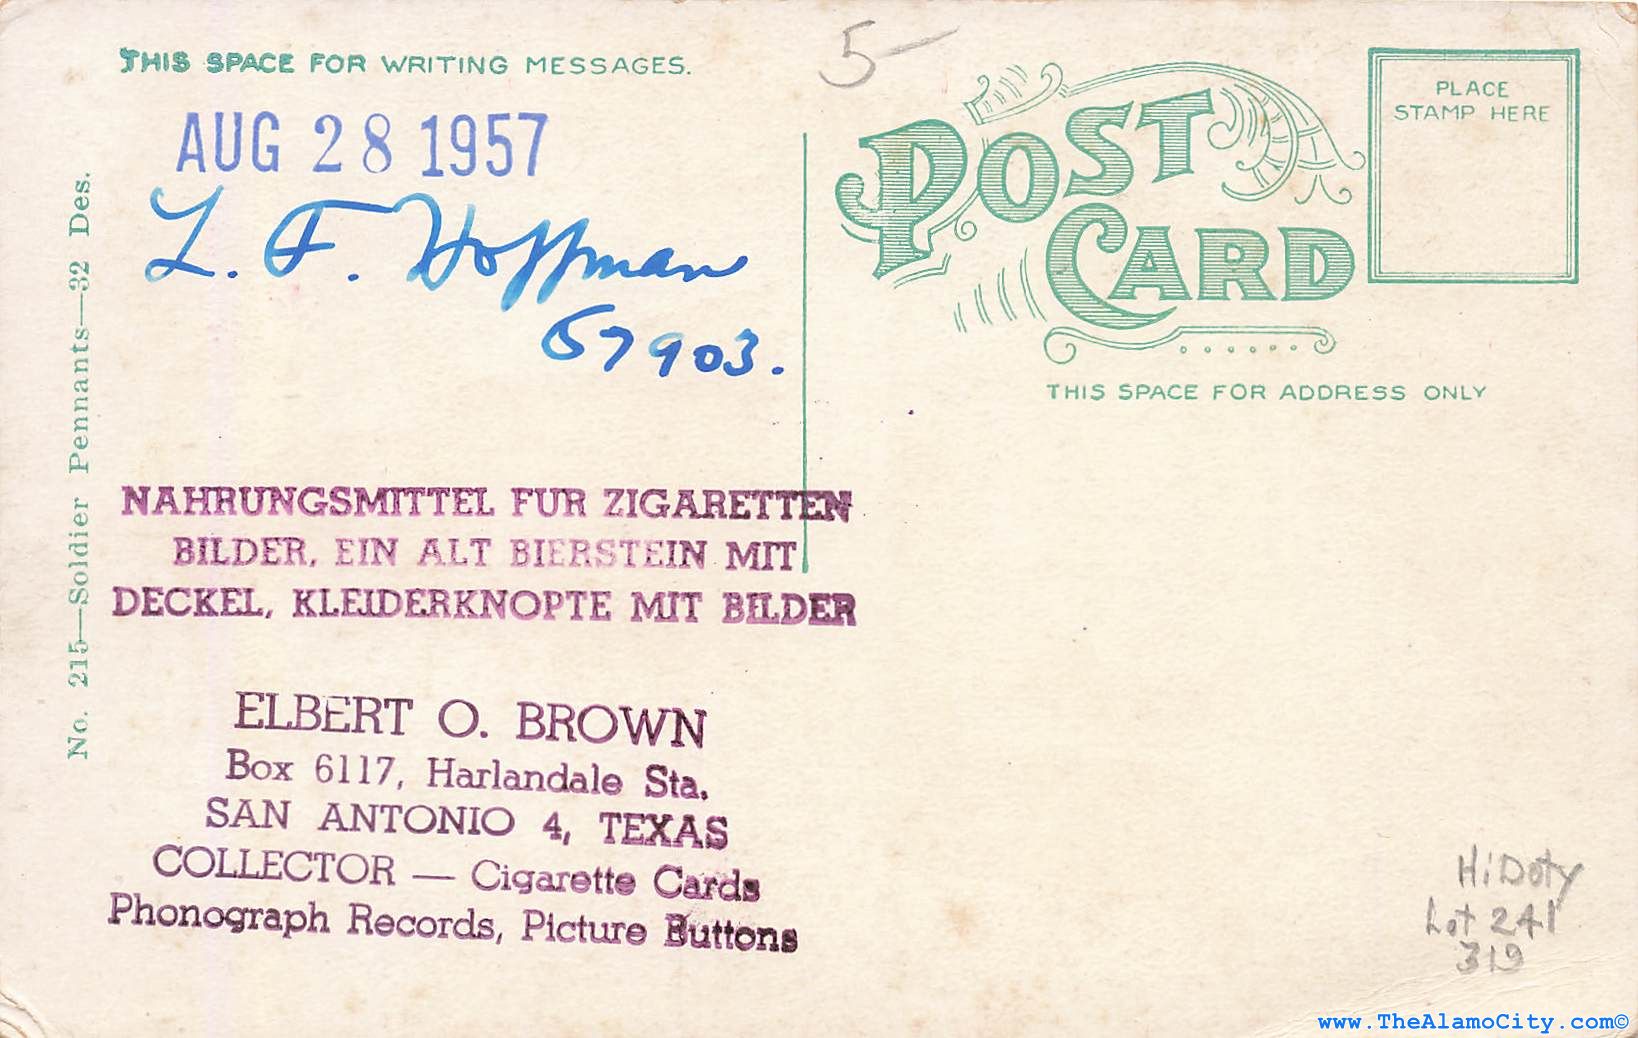 THIS SPACE FOR WRITING MESSAGES.
5-
AUG 28 1957
L. F. Hoffman
57903.
No. 215—Soldier Pennants—32 Des.
POST
CARD
PLACE
STAMP HERE
THIS SPACE FOR ADDRESS ONLY
NAHRUNGSMITTEL FUR ZIGARETTEN
BILDER, EIN ALT BIERSTEIN MIT
DECKEL, KLEIDERKNOPTE MIT BILDER
ELBERT O. BROWN
Box 6117, Harlandale Sta.
SAN ANTONIO 4, TEXAS
COLLECTOR — Cigarette Cards
Phonograph Records, Picture Buttons
HiDoty
Lot 241
319
www.TheAlamoCity.com©